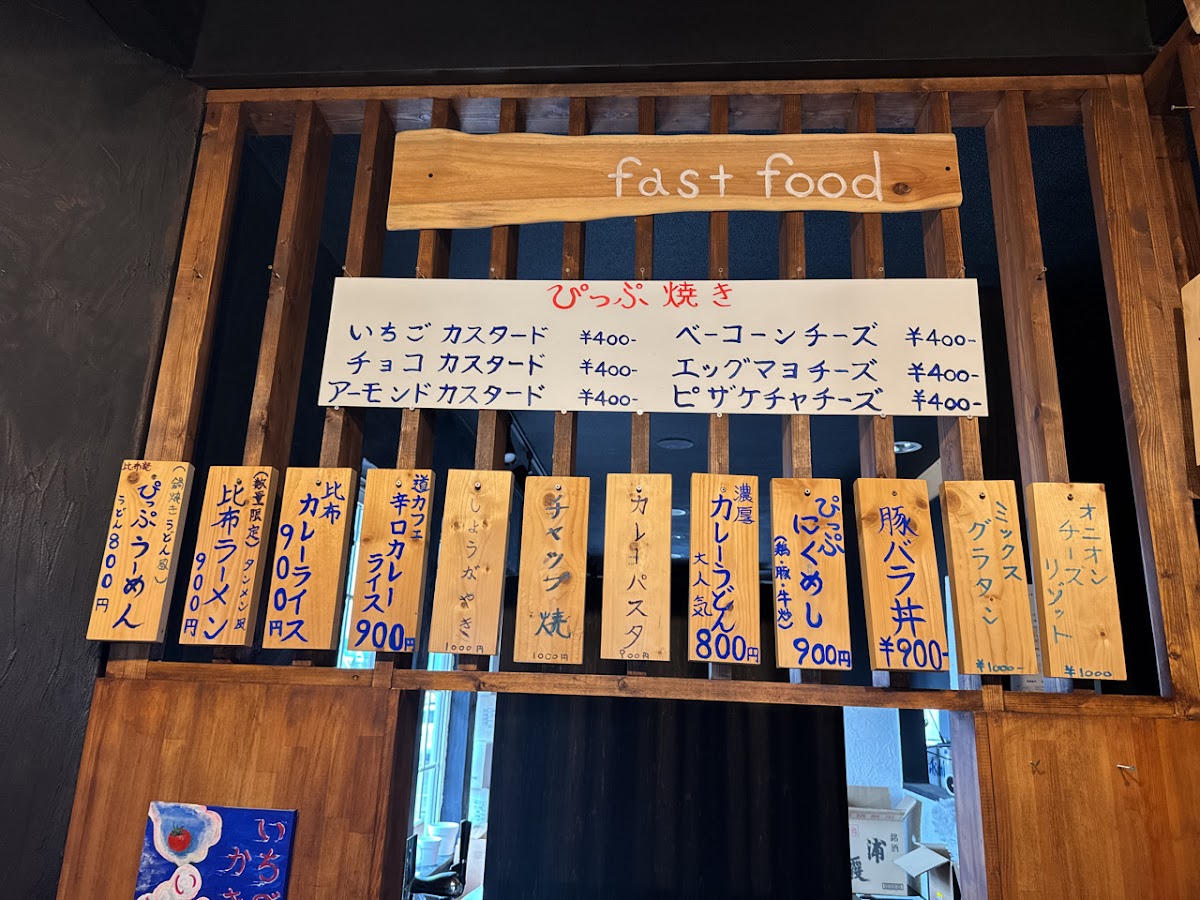 fast food
ぴっぷ焼き
いちごカスタード ¥400-
チョコカスタード ¥400-
アーモンドカスタード ¥400-
ベーコーンチーズ ¥400-
エッグマヨチーズ ¥400-
ピザケチャチーズ ¥400-
(鍋焼きうどん風)
ぴっぷうーめん
うどん800円
(数量限定)タンメン風
比布ラーメン
900円
比布
カレーライス
900円
道カフェ
辛口カレー
ライス
900円
しょうがやき
1000円
チャップ焼
1000円
カレーパスタ
900円
濃厚
カレーうどん
大人気
800円
ぴっぷ
にくめし
(鶏・豚・牛炒)
900円
豚バラ丼
¥900-
ミックス
グラタン
¥1000-
オニオン
チーズ
リゾット
¥1000
いち
かき
い
銘酒
浦